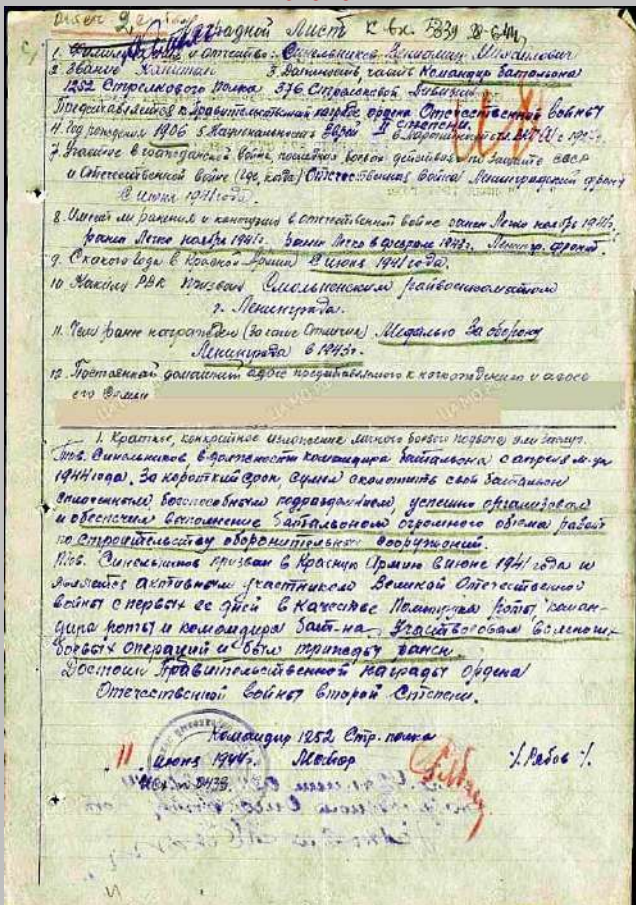 Наградной Лист к вх. 5339 28-6-44
1. Фамилия, имя и отчество: Синельников Вениамин Михайлович
2 Звание Капитан 3. Должность, часть Командир батальона
1252 Стрелкового полка 376 Стрелковой Дивизии
Представляется к Правительственной награде ордена Отечественной войны
II степени.
4. Год рождения 1906 5 Национальность Еврей 6 Партийность чл. ВКП(б) с
7. Участие в гражданской войне, последующих боевых действиях по защите СССР
и Отечественной войне (где, когда) Отечественная война Ленинградский фронт
С июня 1941 года.
8. Имеет ли ранения и контузии в отечественной войне ранен Легко ноябрь
ранен Легко ноябрь 1941г. ранен Легко в феврале Ленингр. фронт.
9. С какого года в Красной Армии С июня 1941 года.
10 Каким РВК призван Смольненским райвоенкоматом
г. Ленинграда.
11. Чем ранее награжден (за какие отличия) Медалью За оборону
Ленинграда в 1943г.
12. Постоянный домашний адрес представляемого к награждению и адрес
его Семьи
1. Краткое, конкретное изложение личного боевого подвига или заслуг.
Тов. Синельников в должности командира батальона с апреля м-ца
1944 года. За короткий срок, сумел сколотить свой батальон
сплоченным, боеспособным подразделением, успешно организовал
и обеспечил выполнение батальоном огромного объема работ
по строительству оборонительных сооружений.
Тов. Синельников призван в Красную Армию в июне 1941 года и
является активным участником Великой Отечественной
войны с первых ее дней в качестве Политрука роты, коман-
дира роты и командира бат-на. Участвовал в
боевых операций и был трижды ранен.
Достоин Правительственной награды ордена
Отечественной войны второй Степени.
Командир 1252 Стр. полка
11 июня 1944г. Майор /. Рябов ./.